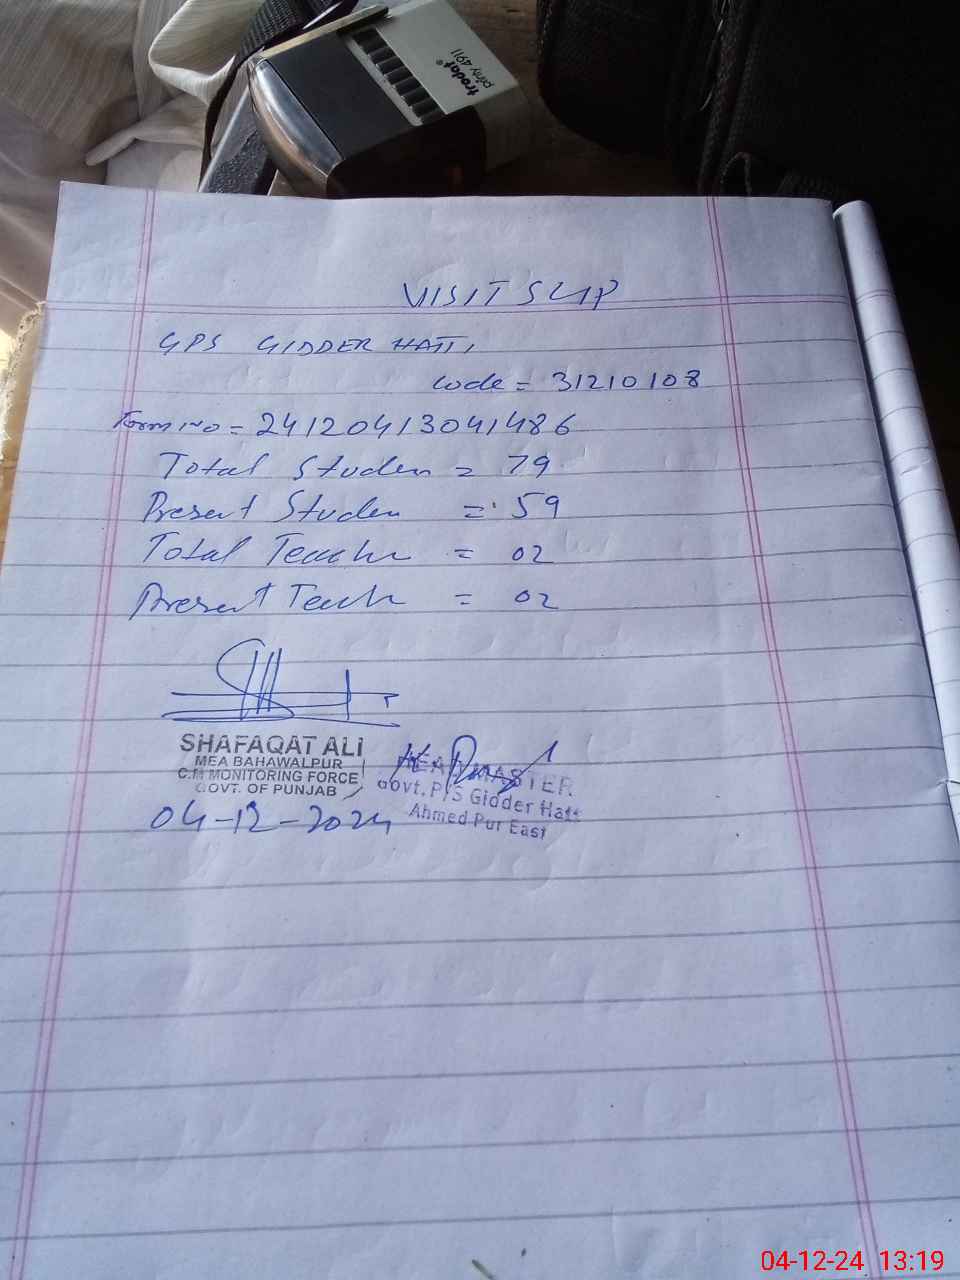 trodat®
printy 4911
VISIT SLIP
GPS GIDDER HATTI
Code = 31210108
Form No = 24120413041486
Total Studen = 79
Present Studen = 59
Total Teache = 02
Present Teach = 02
SHAFAQAT ALI
MEA BAHAWALPUR
C.M MONITORING FORCE
GOVT. OF PUNJAB
04-12-2024
HEADMASTER
Govt. P/S Gidder Hatti
Ahmed Pur East
04-12-24 13:19